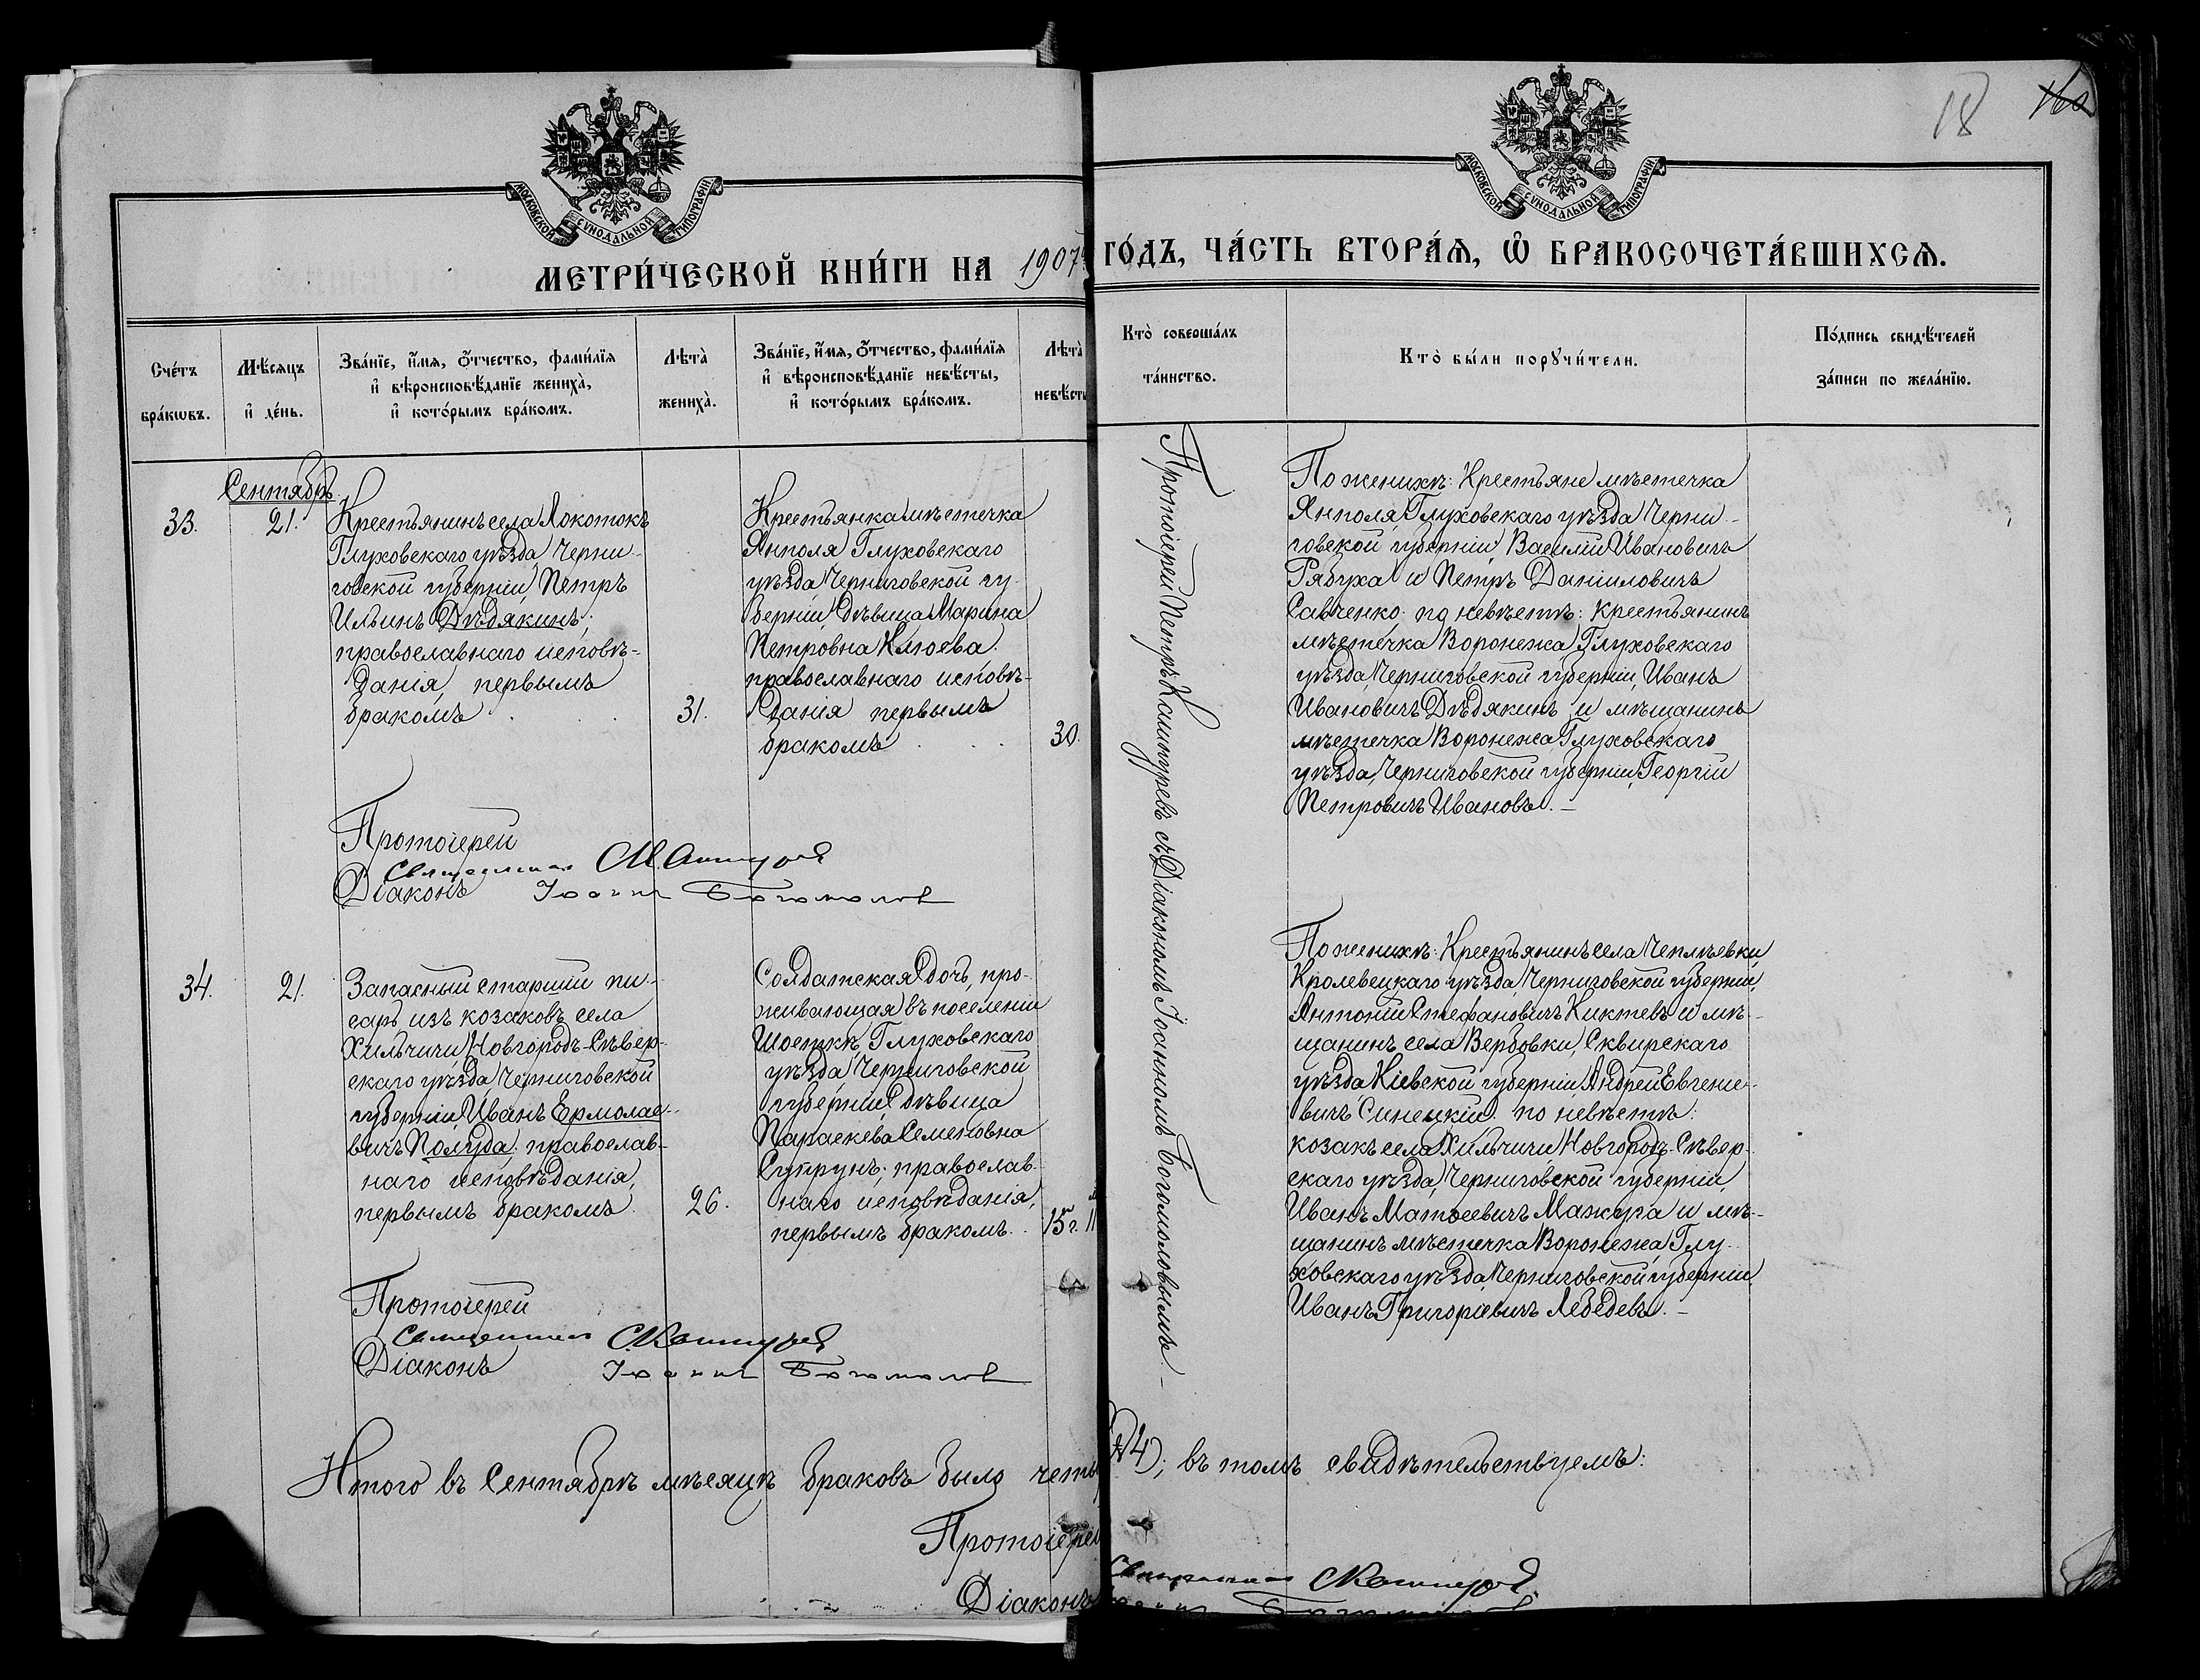 18
МОСКОВСКОЙ СѴНОДАЛЬНОЙ ТИПОГРАФІИ
МОСКОВСКОЙ СѴНОДАЛЬНОЙ ТИПОГРАФІИ
МЕТРИ́ЧЕСКОЙ КНИ́ГИ НА 1907й ГО́ДЪ, ЧА́СТЬ ВТОРА́Ѧ, Ѽ БРАКОСОЧЕТА́ВШИХСѦ.
Сче́тъ бра́кѡвъ.
Мѣ́сяцъ и де́нь.
Зва́нїе, и́мя, ѻ́тчество, фами́лїя
и вѣроисповѣ́данїе жениха̀,
и кото́рымъ бра́комъ.
Лѣта̀ жениха̀.
Зва́нїе, и́мя, ѻ́тчество, фами́лїя
и вѣроисповѣ́данїе невѣ́сты,
и кото́рымъ бра́комъ.
Лѣта̀ невѣ́сты
Кто̀ соверша́лъ
та́инство.
Кто̀ бы́ли порꙋчи́тели.
По́дпись свидѣ́телей
за́писи по жела́нїю.
Сентябрь.
33.
21.
Крестьянинъ села Локотокъ
Глуховскаго уѣзда, Черни-
говской губерніи, Петръ
Ильинъ Дѣдякинъ;
православнаго исповѣ-
данія, первымъ
бракомъ
31.
Крестьянка мѣстечка
Янполя Глуховскаго
уѣзда Черниговской гу-
берніи дѣвица Марина
Петровна Клюева.
православнаго исповѣ-
данія первымъ
бракомъ
30.
Протоіерей Петръ Кашиуревъ съ Діакономъ Іоанномъ Богомоловымъ.
По женихѣ: Крестьяне мѣстечка
Янполя, Глуховскаго уѣзда Черни-
говской губерніи, Василій Ивановичъ
Рябуха и Петръ Даніиловичъ
Савченко; по невѣстѣ: крестьянинъ
мѣстечка Воронежа, Глуховскаго
уѣзда, Черниговской губерніи, Иванъ
Ивановичъ Дѣдякинъ и мѣщанинъ
мѣстечка Воронежа, Глуховскаго
уѣзда, Черниговской губерніи, Георгій
Петровичъ Ивановъ. —
Протоіерей
Священникъ
Діаконъ Іоаннъ Богомолов
34.
21.
Запасный старшій пи-
сарь изъ козаковъ села
Хильчичи, Новгородъ-Сѣвер-
скаго уѣзда Черниговской
губерніи, Иванъ Ермолае-
вичъ Полуда; православ-
наго исповѣданія,
первымъ бракомъ.
26.
Солдатская дочь, про-
живающая въ поселеніи
Шосткѣ, Глуховскаго
уѣзда Черниговской
губерніи, дѣвица
Параскева Семеновна
Супрунъ; православ-
наго исповѣданія,
первымъ бракомъ.
15 г. 11
По женихѣ: Крестьянинъ села Чеплѣевки
Кролевецкаго уѣзда, Черниговской губерніи,
Антоній Стефановичъ Киктевъ и мѣ-
щанинъ села Вербовки, Сквирскаго
уѣзда Кіевской губерніи, Андрей Евгеніе-
вичъ Синецкій. по невѣстѣ:
козакъ села Хильчичи, Новгородъ-Сѣвер-
скаго уѣзда, Черниговской губерніи,
Иванъ Матѳеевичъ Мажуга и мѣ-
щанинъ мѣстечка Воронежа, Глу-
ховскаго уѣзда, Черниговской губерніи
Иванъ Григоріевичъ Лебедевъ. —
Протоіерей
Священникъ
Діаконъ Іоаннъ Богомолов
Итого въ Сентябрѣ мѣсяцѣ браковъ было четы (4); въ томъ свидѣтельствуемъ:
Протоіерей
Священникъ
Діаконъ